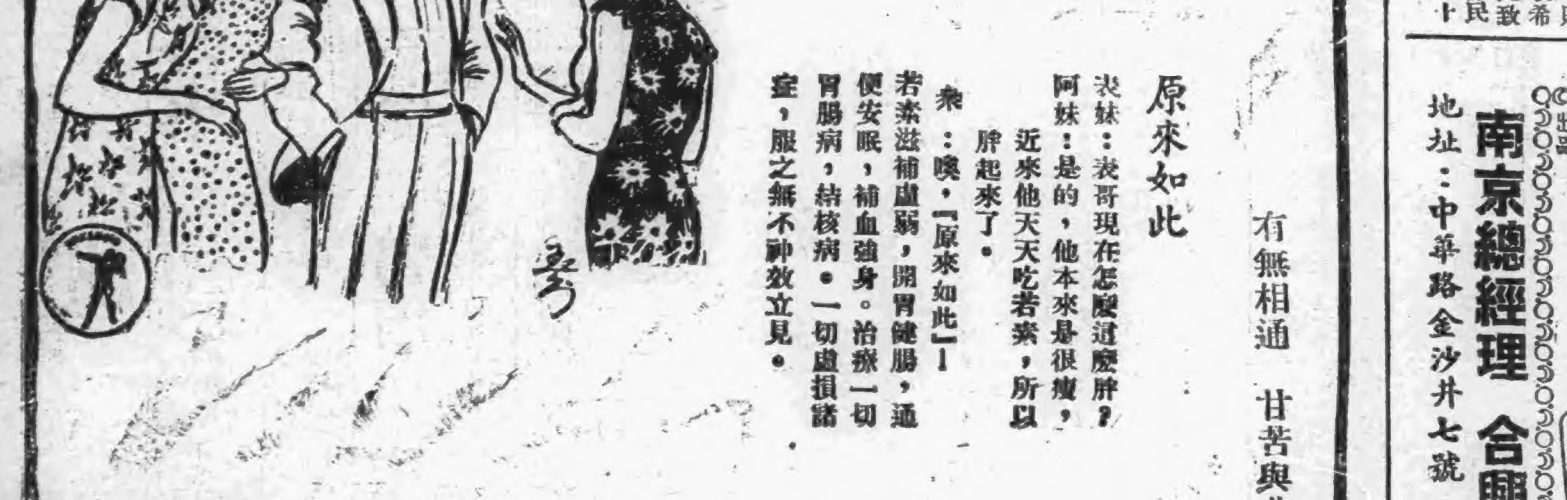 民致希
南京總經理 合興
地址：中華路金沙井七號
有無相通 甘苦與
原來如此
表妹：表哥現在怎麼這麼胖？
阿妹：是的，他本來是很瘦，
近來他天天吃若素，所以
胖起來了。
衆：噢，『原來如此』！
若素滋補虛弱，開胃健腸，通
便安眠，補血強身。治療一切
胃腸病，結核病。一切虛損諸
症，服之無不神效立見。